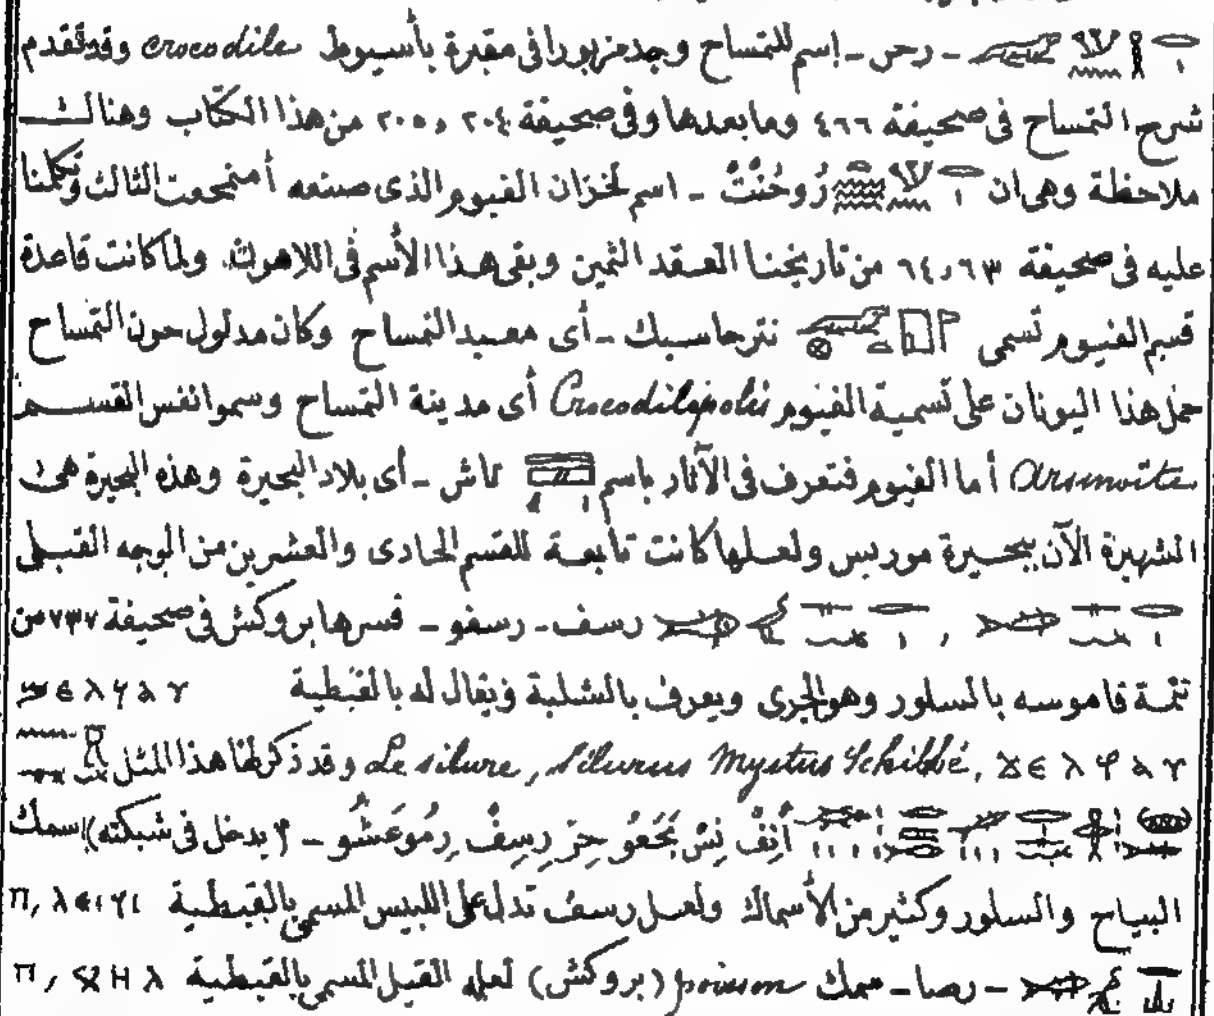 - رحن - إسم للتمساح وجد مزبورا فى مقبرة بأسيوط crocodile وقد تقدم
شرح التمساح فى صحيفة ٤٦٦ وما بعدها وفى صحيفة ٢٠٤ و ٢٠٥ من هذا الكتاب وهنالك
ملاحظة وهى ان رُوحُنْتْ - اسم لخزان الفيوم الذى صنعه أمنمحعت الثالث وتكلمنا
عليه فى صحيفة ٦٣ و ٦٤ من تاريخنا العقد الثمين وبقى هذا الأسم فى اللاهون ولما كانت قاعدة
قسم الفيوم تسمى نترحاسبك - أى معبد التمساح وكان مدلول حون التمساح
حمل هذا اليونان على تسمية الفيوم Crocodilopolis أى مدينة التمساح وسموا نفس القسم
Arsinoïte أما الفيوم فتعرف فى الآثار باسم تاش - أى بلاد البحيرة وهذه البحيرة هى
الشهيرة الآن ببحيرة موريس ولعلها كانت تابعة للقسم الحادى والعشرين من الوجه القبلى
, رسف - رسفو - فسرها بروكش فى صحيفة ٧٣٧ من
تتمة قاموسه بالسلور وهو الجرى ويعرف بالشلبة ويقال له بالقبطية
Le silure, silurus Mystus Schilbé, وقد ذكر لها هذا المثل
أَنِفْ نِسْ بَحَعُو حِرْ رِسِفْ رِمُو عَشُو - ٣ يدخل فى شبكته) سمك
البياح والسلور وكثير من الأسماك ولعل رسف تدل على اللبيس المسمى بالقبطية
- رصا - سمك poisson (بروكش) لعله القيل المسمى بالقبطية